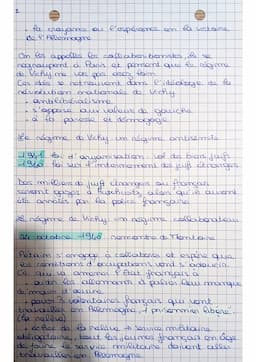 - la croyance ou l'espérance en la victoire
de l'Allemagne
On les appelles les collaborationnistes, ils se
regroupent à Paris et pensent que le régime
de Vichy ne va pas assez loin
Ces idées se retrouvent dans l'idéologie de la
révolution nationale de Vichy
- antilibéralisme
- s'oppose aux valeurs de gauche
- à la paresse et démagogie
Le régime de Vichy un régime antisémite
loi d'aryanisation : vol des biens juifs
loi sur l'internement des juifs étrangers
Des milliers de juifs étrangers ou français
seront gazés à Auschwitz alors qu'ils auront
été arrêtés par la police française
Le régime de Vichy, un régime collaborateur
24 octobre rencontre de Montoire
Pétain s'engage à collaborer et espère que
les conditions d'occupations vont s'adoucir
Ce qui va amener l'État français à
- aider les allemands à palier leur manque
de main d'œuvre
- pour 3 volontaires français qui vont
travailler en Allemagne, 1 prisonnier libéré
(la relève)
- échec de la relève → service militaire
obligatoire, tout les jeunes français en âge
de faire le service militaire doivent aller
travailler en Allemagne